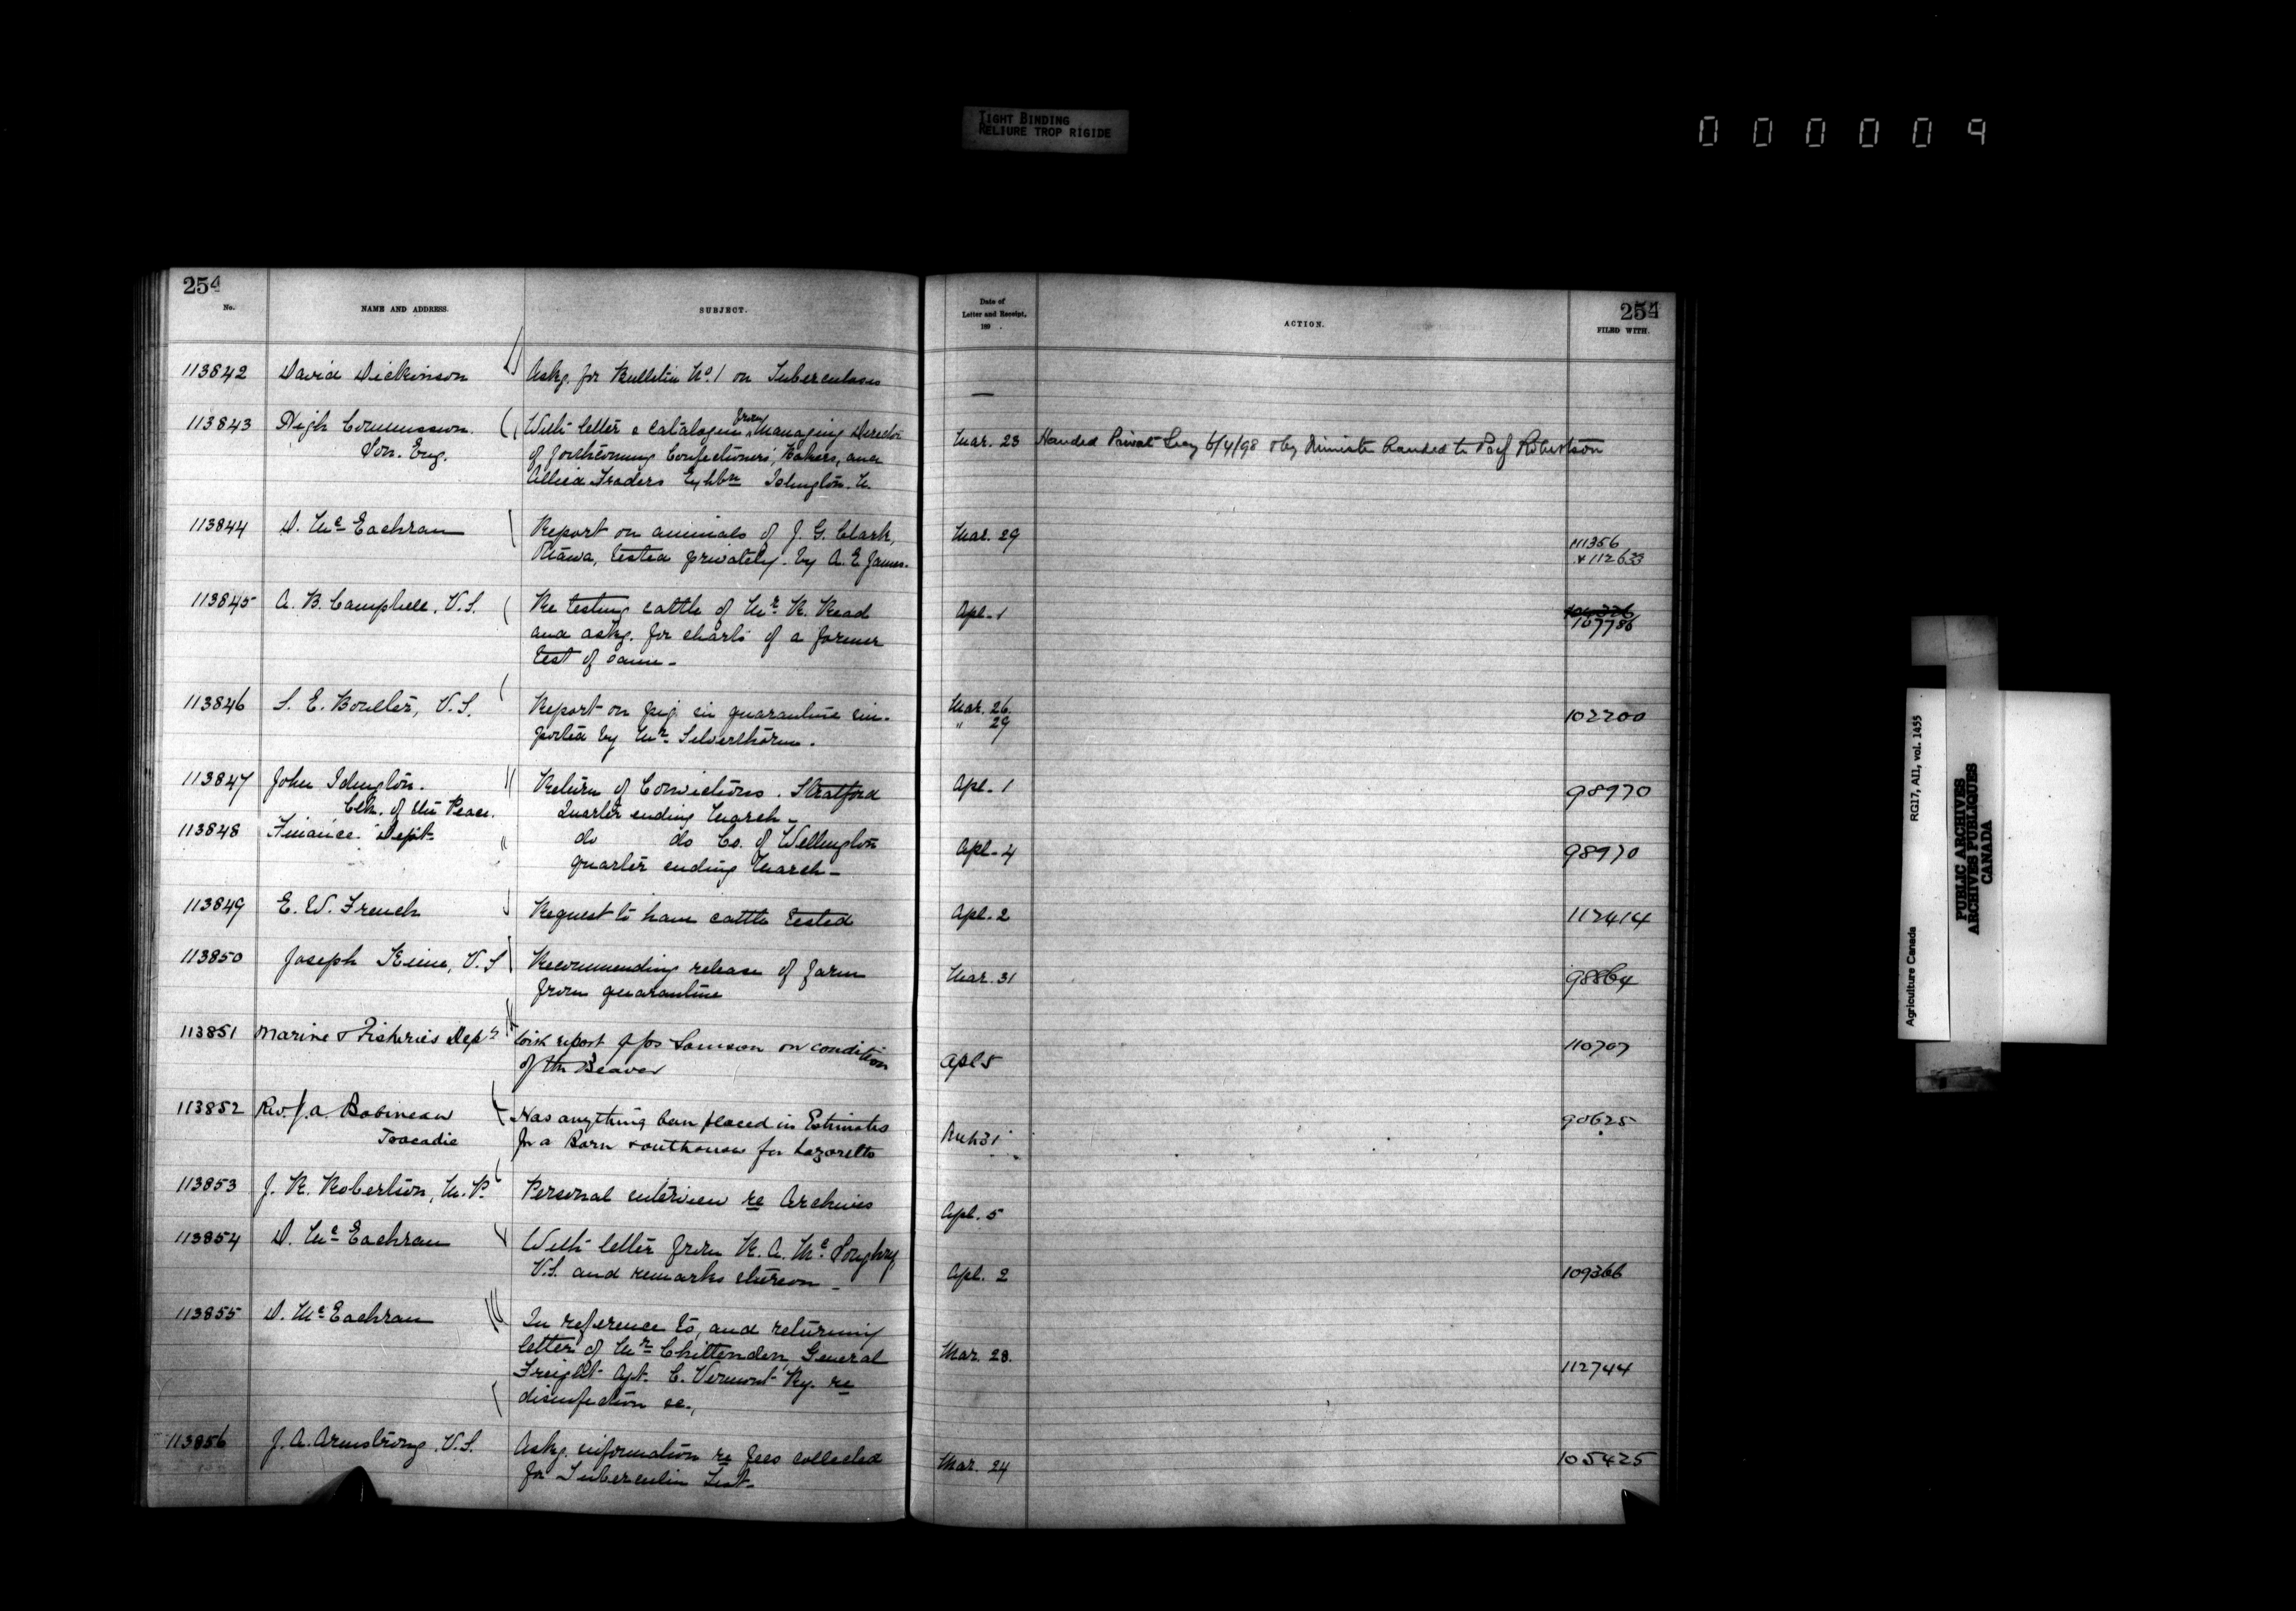 TIGHT BINDING
RELIURE TROP RIGIDE
000009
254
No.
NAME AND ADDRESS.
SUBJECT.
Date of
Letter and Receipt,
189 .
ACTION.
254
FILED WITH.
113842 David Dickinson Askg. for Bulletin No. 1 on Tuberculosis —
113843 High Commission. With letter & catalogue from Managing Director
Lon. Eng. of forthcoming Confectioners', Bakers, and
Allied Traders Exhbn Islington. Mar. 23 Handed Private Secy 6/4/98 & by Minister handed to Prof Robertson
113844 D. McEachran Report on animals of J. G. Clark, Mar. 29 111356
Ottawa, tested privately by A. E. James. & 112633
113845 A. B. Campbell, V.S. Re testing cattle of Mr. R. Read Apl. 1 107786
and askg. for charts of a former
test of same -
113846 S. E. Boulter, V.S. Report on pig in quarantine im- Mar. 26. 102200
ported by Mr. Silverthorn. " 29
113847 John Idington. Return of Convictions. Stratford Apl. 1 98970
Clk. of the Peace. Quarter ending March -
113848 Finance Dept. do do Co. of Wellington Apl. 4 98970
quarter ending March -
113849 E. W. French Request to have cattle tested Apl. 2 112414
113850 Joseph Keine, V.S Recommending release of farm Mar. 31 98864
from quarantine
113851 Marine & Fisheries Dept With report of Jos Samson on condition Apl 5 110707
of the Beaver
113852 Rev. J. A. Babineau Has anything been placed in Estimates Mch 31 90625
Tracadie for a Barn & outhouse for Lazaretto
113853 J. R. Robertson, M.P. Personal interview re Archives Apl. 5
113854 D. McEachran With letter from R. A. McLoughry, Apl. 2 109366
V.S. and remarks thereon -
113855 D. McEachran In reference to, and returning
letter of Mr. Chittenden, General Mar. 28. 112744
Freight Agt. C. Vermont Ry. re
disinfection &c.,
113856 J. A. Armstrong. V.S. Askg. information re fees collected Mar. 24 105425
for Tuberculin Test.
Agriculture Canada RG17, AII, vol. 1455
PUBLIC ARCHIVES
ARCHIVES PUBLIQUES
CANADA